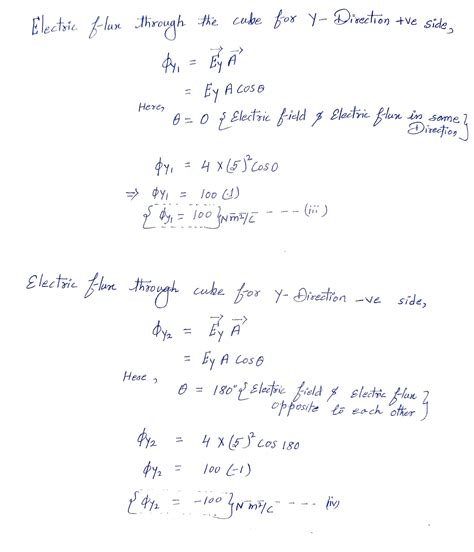 Electric flux through the cube for Y-Direction +ve side,
ϕy₁ = E⃗y A⃗
= Ey A cosθ
Here,
θ = 0 { Electric field & Electric flux in same Direction }
ϕy₁ = 4 × (5)² cos0
⇒ ϕy₁ = 100 (1)
{ ϕy₁ = 100 } Nm²/C ---- (iii)
Electric flux through cube for Y-Direction -ve side,
ϕy₂ = E⃗y A⃗
= Ey A cosθ
Here,
θ = 180° { Electric field & Electric flux opposite to each other }
ϕy₂ = 4 × (5)² cos 180
ϕy₂ = 100 (-1)
{ ϕy₂ = -100 } Nm²/C ---- (iv)